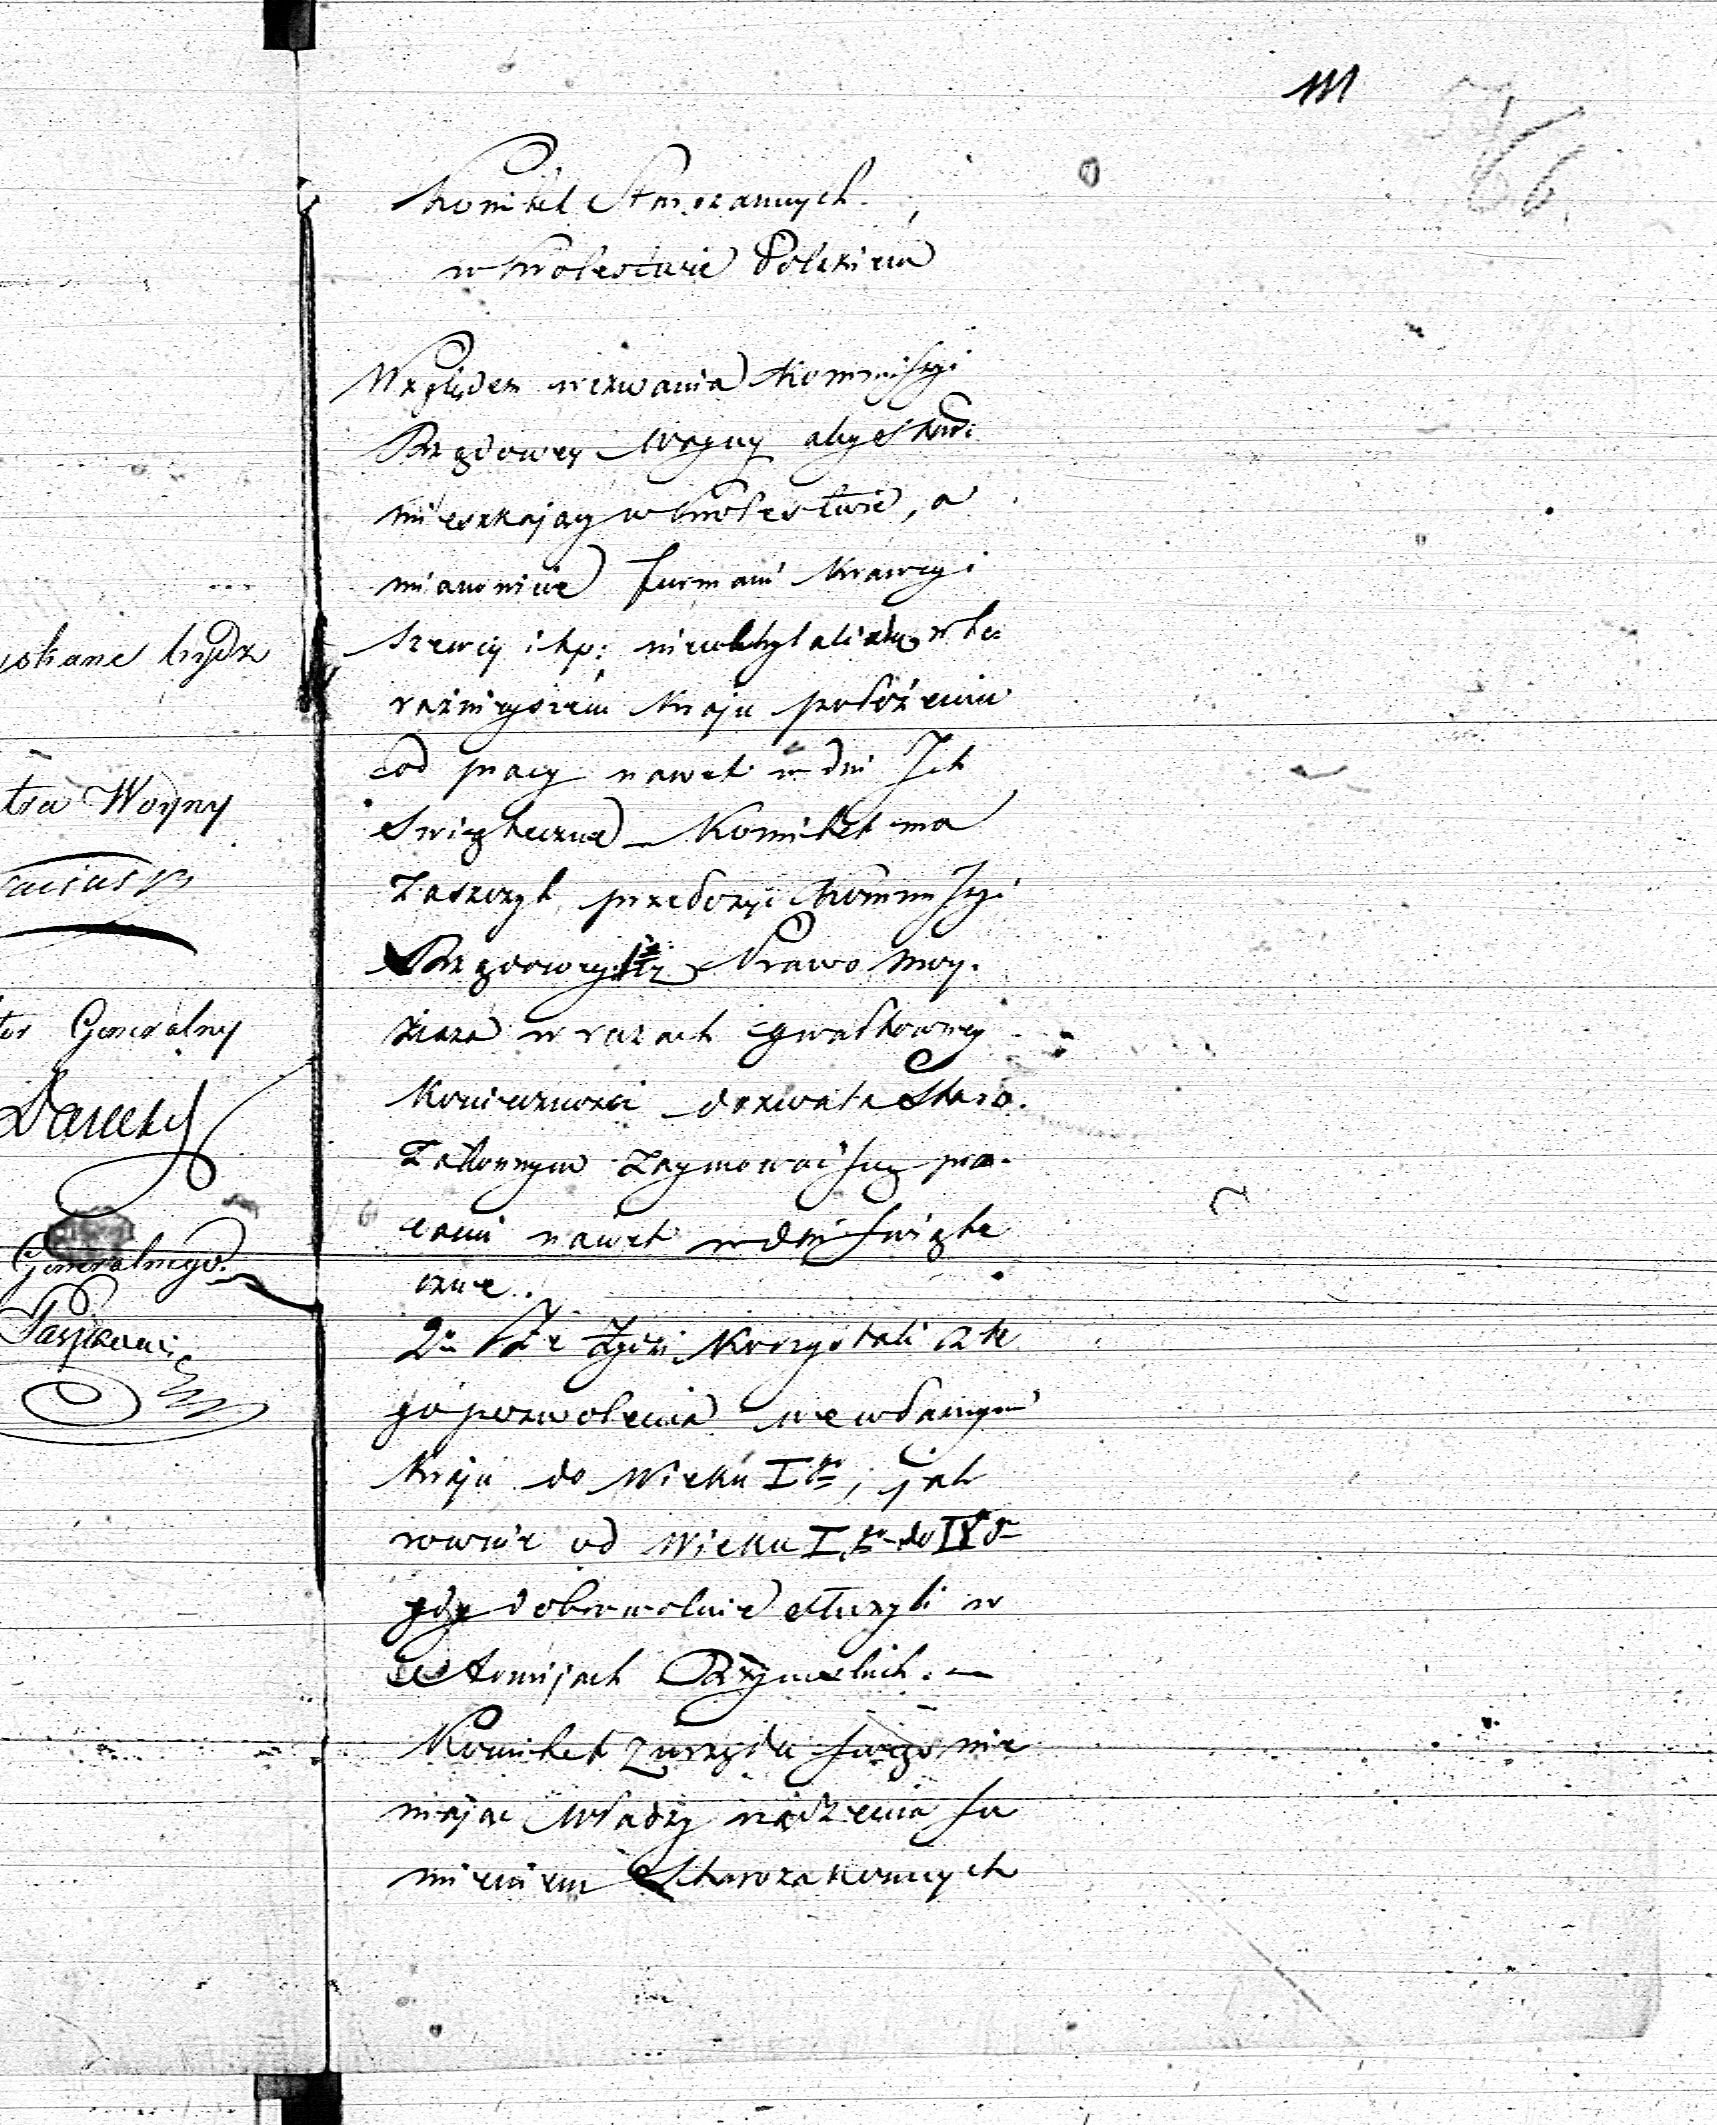 111
66.
Komitet Starozannych
w Krolestwie Polskiem
Względem wezwania Kommissyi
Rządowey Woyny aby Żydzi
mieszkający w Krolestwie, a
mianowicie furmani Krawcy i
szewcy i tp: nieuchylali się w te
raźnieyszém Kraju położeniu
od pracy nawet w dni Ich
Swiąteczne Komitet ma
Zaszczyt przedożyć Kommissyi
Rządowey że Prawo Moy.
żesza w razach gwałtowney
Konieczności dozwala Staro.
Zakonnym Zaymować się pra.
cami nawet w dni świąte
czne.
2o Że Żydzi Korzystali z te
go pozwolenia we własnym
Kraju do Wieku Igo, jak
rownie od Wieku Igo do IVgo
gdy dobrowolnie służyli w
Armijach Rzymskich.
Komitet z urzędu swego nie
mając Władzy rządzenia su
mieniem Starozakonnych
yskane będz
tra Woyny
tor Generalny
Generalnego.